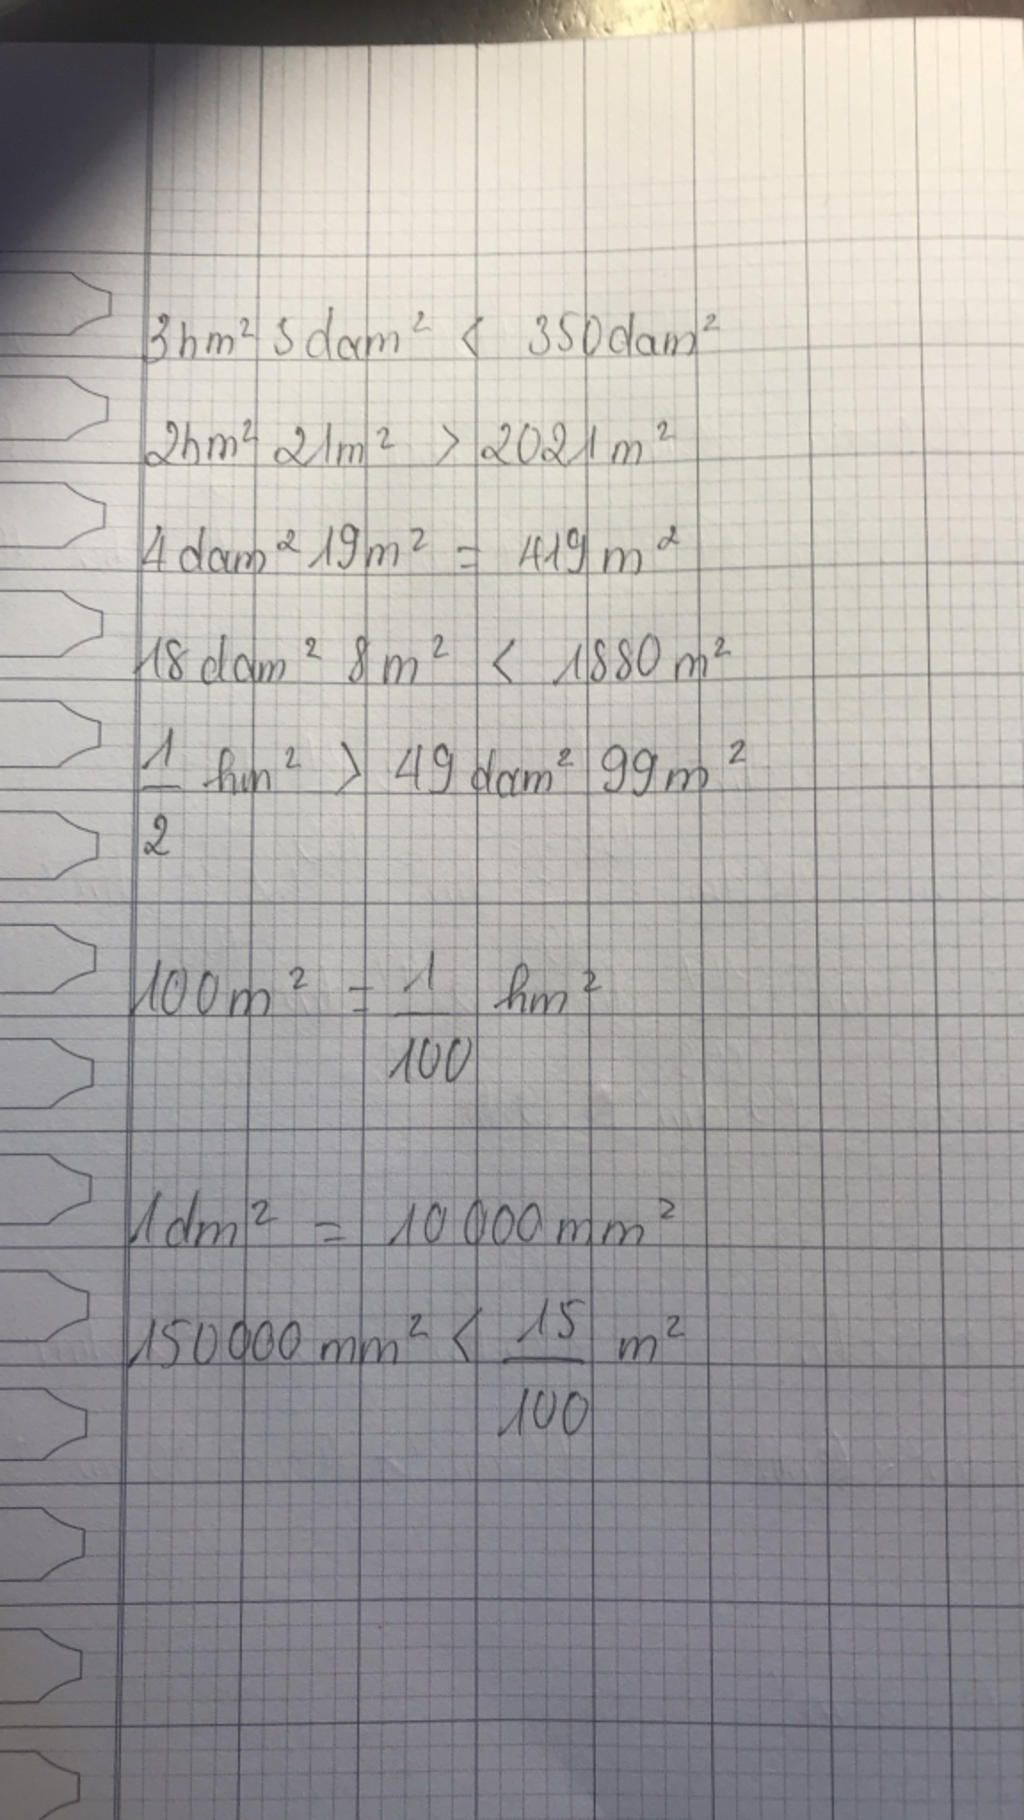 3hm² 5dam² < 350dam²
2hm² 21m² > 2021m²
4dam² 19m² = 419m²
18dam² 8m² < 1880m²
1/2 hm² > 49dam² 99m²
100m² = 1/100 hm²
1dm² = 10 000mm²
150000mm² < 15/100 m²